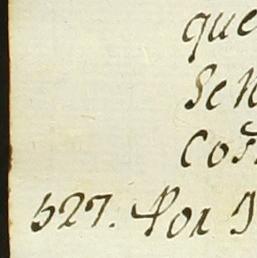 que
Se
Cos
527. Por